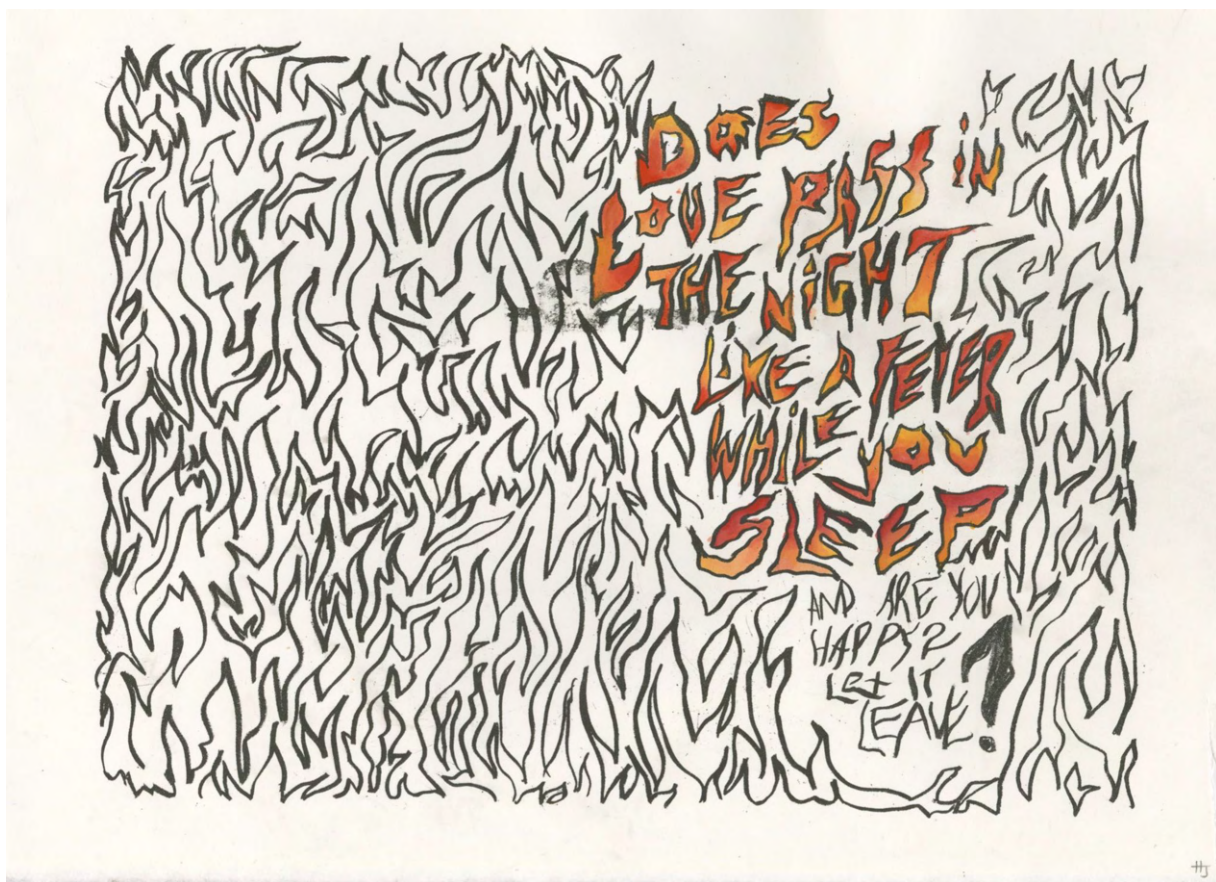 DOES
LOVE PASS IN
THE NiGHT
LiKE A FEVER
WHiLE YOU
SLEEP
AND ARE YOU
HAPPY?
LET IT
LEAVE?
HJ